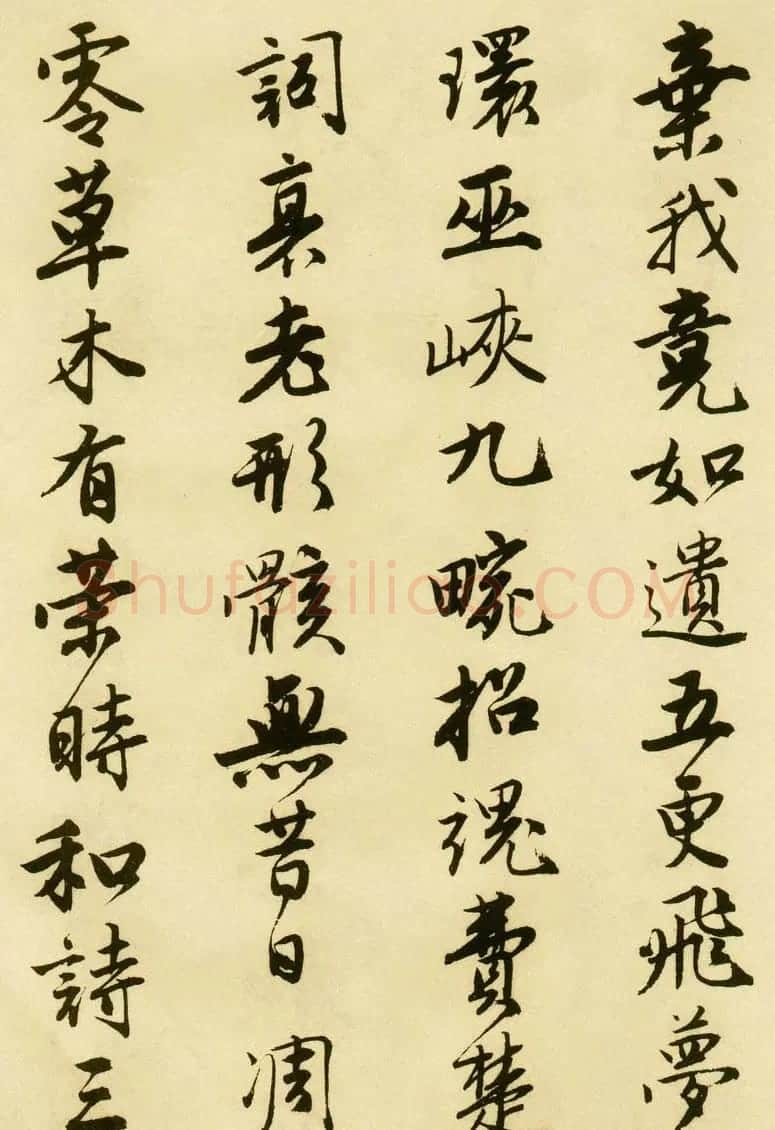 棄我竟如遺五更飛夢
環巫峽九畹招魂費楚
詞衰老形骸無昔日凋
零草木有榮時和詩三
Shufaziliao.COM